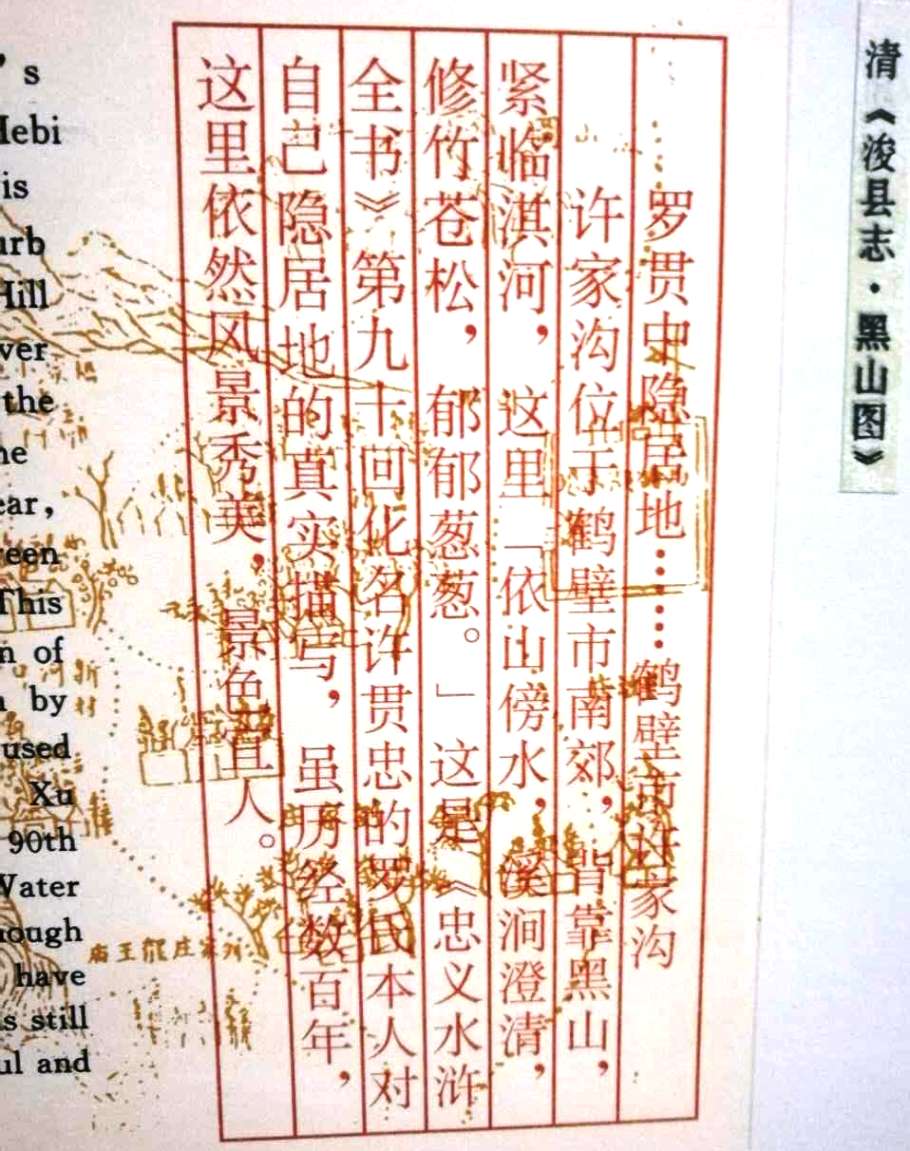 清《浚县志·黑山图》
罗贯中隐居地……鹤壁市许家沟
许家沟位于鹤壁市南郊，背靠黑山，
紧临淇河，这里「依山傍水，溪涧澄清，
修竹苍松，郁郁葱葱。」这是《忠义水浒
全书》第九十回化名许贯忠的罗氏本人对
自己隐居地的真实描写，虽历经数百年，
这里依然风景秀美，景色宜人。
's
Hebi
is
urb
Hill
ver
the
ne
ear,
reen
This
n of
by
used
Xu
90th
Water
hough
have
s still
ul and